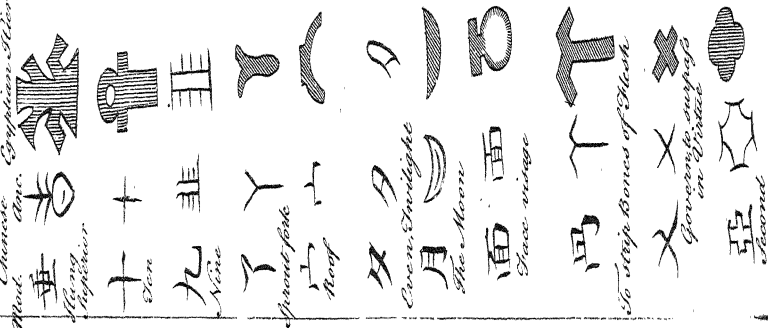 Chinese Egyptian Hier
Mod. Anc.
Superior
十 十
Ten
九
Nine
丫 丫
Sprout fork
宀
Roof
夕
Even. Twilight
月
The Moon
面
Face visage
冎
To strip Bones of Flesh
乂
Govern to surpass
in Virtue
亞
Second